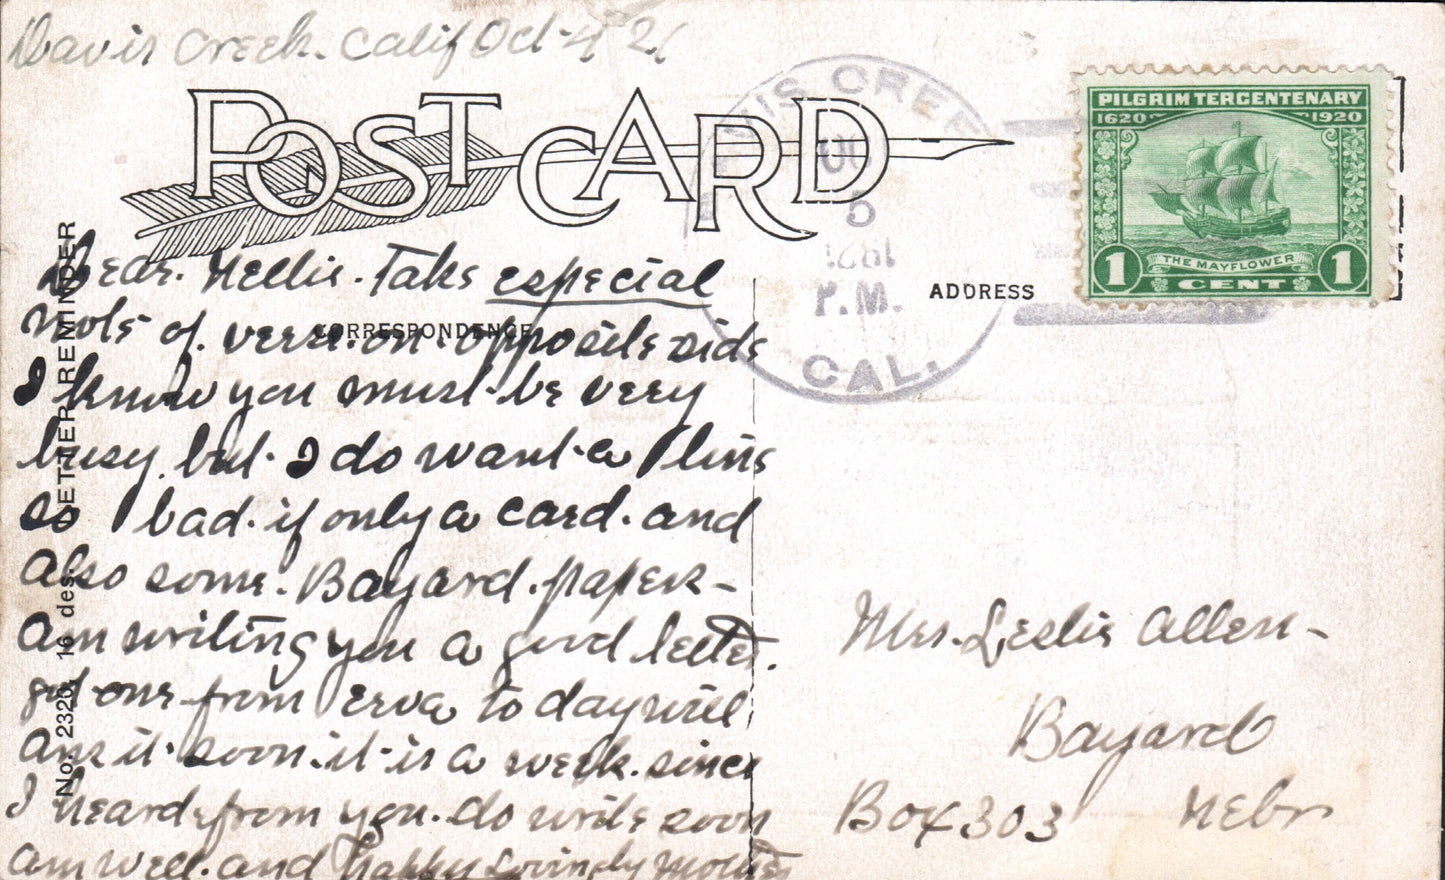 Davis Creek. Calif Oct-4 21
POST CARD
DAVIS CREEK
5
P.M.
CAL.
PILGRIM TERCENTENARY
1620 1920
THE MAYFLOWER
1 CENT 1
ADDRESS
CORRESPONDENCE
No. 2320 16 des. LETTER REMINDER
Dear. Nellie. Take especial
note of. verse. on. opposite side
I know you must. be very
busy. but. I do want a line
so bad. if only a card. and
also some. Bayard. paper-
am writing you a good letter.
got one from Erva to day will
ans it. soon. it is a week. since
I heard from you. do write soon
am well. and happy Lovingly Mother
Mrs. Leslie Allen-
Bayard
Box 303 Nebr